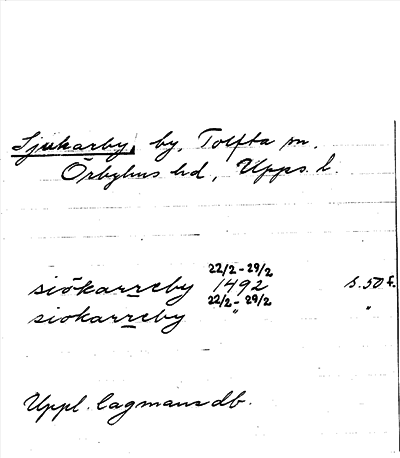 Sjukarby, by, Tolfta sn.
Örbyhus hd, Upps. l.
22/2 - 29/2
siōkarreby 1492 s. 50 f.
22/2 - 29/2
siokarreby " "
Uppl. lagmans db.